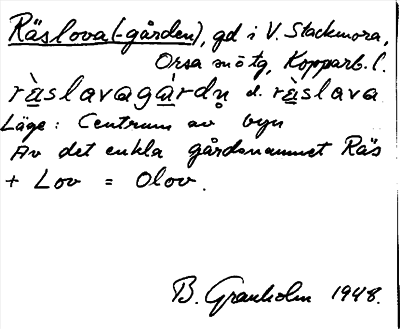 Räslova (-gården), gd i V. Stackmora,
Orsa sn ö tg, Kopparb. l.
ràslavagárdn̥ el. ràslava
Läge: Centrum av byn
Av det enkla gårdsnamnet Räs
+ Lov = Olov.
B. Granholm 1948.